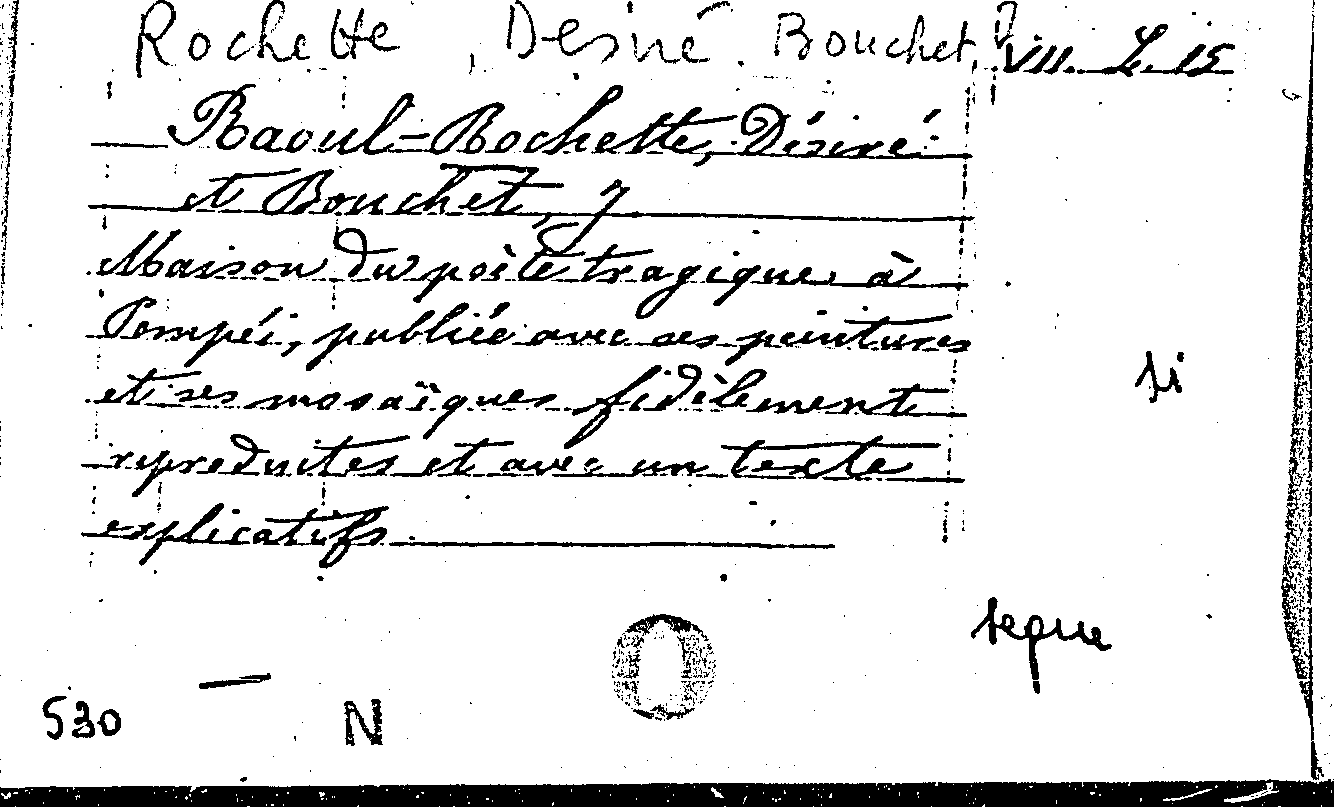 Rochette, Desiré. Bouchet, J
VII. L. 15
Raoul-Rochette, Désiré
et Bouchet, J
Maison du poète tragique à
Pompéi, publiée avec ses peintures
et ses mosaïques fidèlement
reproduites et avec un texte
explicatifs
si
segue
530
N